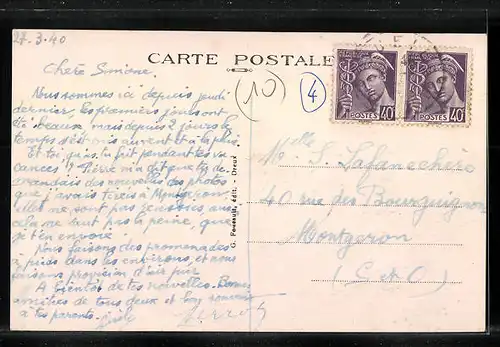 27.3.40
CARTE POSTALE
Chère Simone.
(10)
(4)
Nous sommes ici depuis jeudi
dernier, les premiers jours ont
été beaux, mais depuis 2 jours le
temps est au vent et à la pluie
Et toi, qu'as tu fait pendant les va
cances ? Pierre m'a dit que tu de-
mandais des nouvelles des photos
que j'avais
elles ne sont pas
cela ne vaut pas la peine, que
je t'en envoie.
Nous faisons des promenades
à pieds dans les environs, et nous
faisons provision d'air pur
A bientôt de tes nouvelles. Bonnes
amitiés de tous deux et bon souvenir
à tes parents.
G. Foucault, édit. - Dreux
POSTES 40
POSTES 40
Melle S. Lafanechère
40 rue des Bourguignons
Montgeron
(S. et O.)